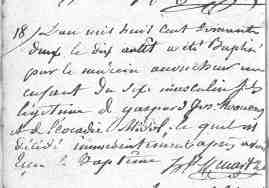 18 L'an mil huit cent soixante
deux le dix août a été Baptisé
par le médecin accoucheur un
enfant du sexe masculin fils
légitime de gaspard Jos.
et de Léocadie Michel, le quel est
décédé immédiatement après avoir
reçu le Baptême